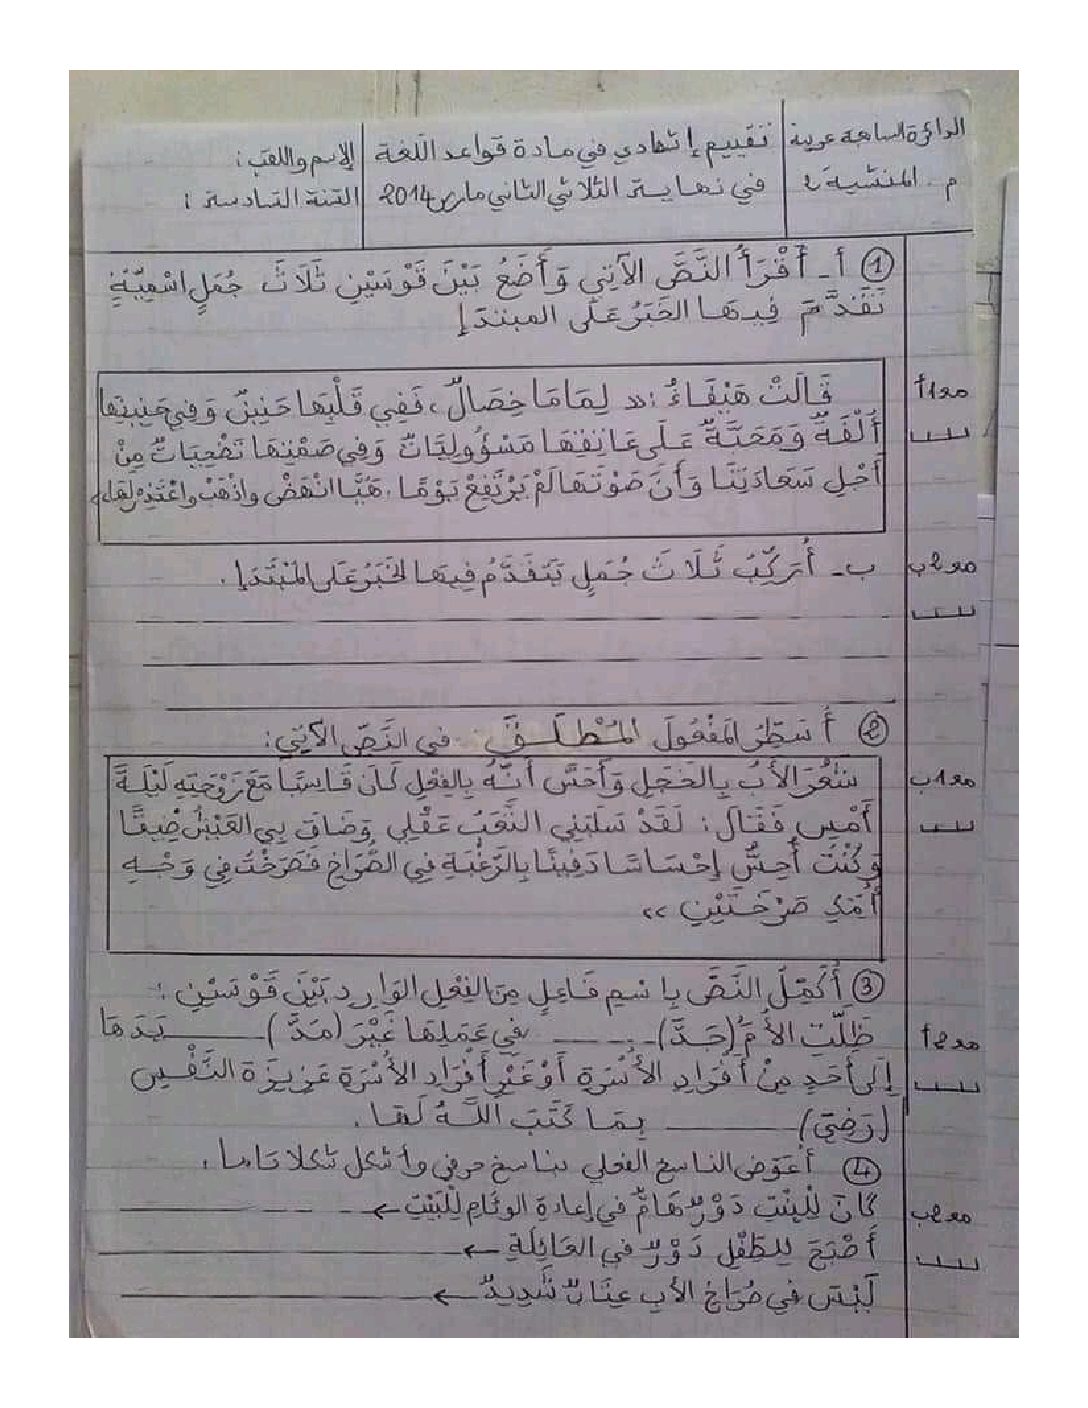 الدائرة السابعة عربية
م. المنشية 2
تقييم إشهادي في مادة قواعد اللغة
في نهاية الثلاثي الثاني مارس 2014
الإسم واللقب :
السّنة السّادسة :
① أ - أَقْرَأُ النَّصَّ الآتِي وَأَضَعُ بَيْنَ قَوْسَيْنِ ثَلَاثَ جُمَلٍ اسْمِيَّةٍ
تَقَدَّمَ فِيهَا الخَبَرُ عَلَى المبتدَإ
مع1أ
قَالَتْ هَيْفَاءُ : « لِمَامَا خِصَالٌ ، فَفِي قَلْبِهَا حَنِينٌ وَفِي جَبِينِهَا
أُلْفَةٌ وَمَحَبَّةٌ عَلَى عَاتِقِهَا مَسْؤُولِيَّاتٌ وَفِي صَمْتِهَا تَضْحِيَاتٌ مِنْ
أَجْلِ سَعَادَتِنَا وَأَنَّ صَوْتَهَا لَمْ يَرْتَفِعْ يَوْمًا . هَيَّا انْهَضْ واذْهَبْ واعْتَذِرْ لَهَا »
مع2ب
ب - أُرَكِّبُ ثَلَاثَ جُمَلٍ يَتَقَدَّمُ فِيهَا الخَبَرُ عَلَى المُبْتَدَإِ .
② أُسَطِّرُ المَفْعُولَ المُطْلَقَ في النَّصِّ الآتِي :
مع1ب
شَعُرَ الأَبُ بِالخَجَلِ وَأَحَسَّ أَنَّهُ بِالفِعْلِ كَانَ قَاسِيًا مَعَ زَوْجَتِهِ لَيْلَةَ
أَمْسِ فَقَالَ : لَقَدْ سَلَبَنِي التَّعَبُ عَقْلِي وَضَاقَ بِي العَيْشُ ضِيقًا
وَكُنْتُ أُحِسُّ إِحْسَاسًا دَفِينًا بِالرَّغْبَةِ فِي الصُّرَاخِ فَصَرَخْتُ فِي وَجْهِ
أُمِّكِ صَرْخَتَيْنِ »
③ أُكَمِّلُ النَّصَّ بِاسْمِ فَاعِلٍ مِنَ الفِعْلِ الوَارِدِ بَيْنَ قَوْسَيْنِ :
ظَلَّتِ الأُمُّ (جَدَّ) ـــــــ في عَمَلِهَا غَيْرَ (مَدَّ) ـــــــ يَدَهَا
مع2أ
إِلَى أَحَدٍ مِنْ أَفْرَادِ الأُسْرَةِ أَوْ غَيْرِ أَفْرَادِ الأُسْرَةِ عَزِيزَةَ النَّفْسِ
(رَضِيَ) ـــــــ بِمَا كَتَبَ اللَّهُ لَهَا .
④ أعَوّض الناسخ الفعلي بناسخ حرفي وأشكل شكلا تاما .
مع2ب
كَانَ لِلْبِنْتِ دَوْرٌ هَامٌّ في إعادَةِ الوِئَامِ لِلْبَيْتِ ← ـــــــ
أَصْبَحَ لِلطِّفْلِ دَوْرٌ في العَائِلَةِ ← ـــــــ
لَيْسَ في صُرَاخِ الأَبِ عِتَابٌ شَدِيدٌ ← ـــــــ